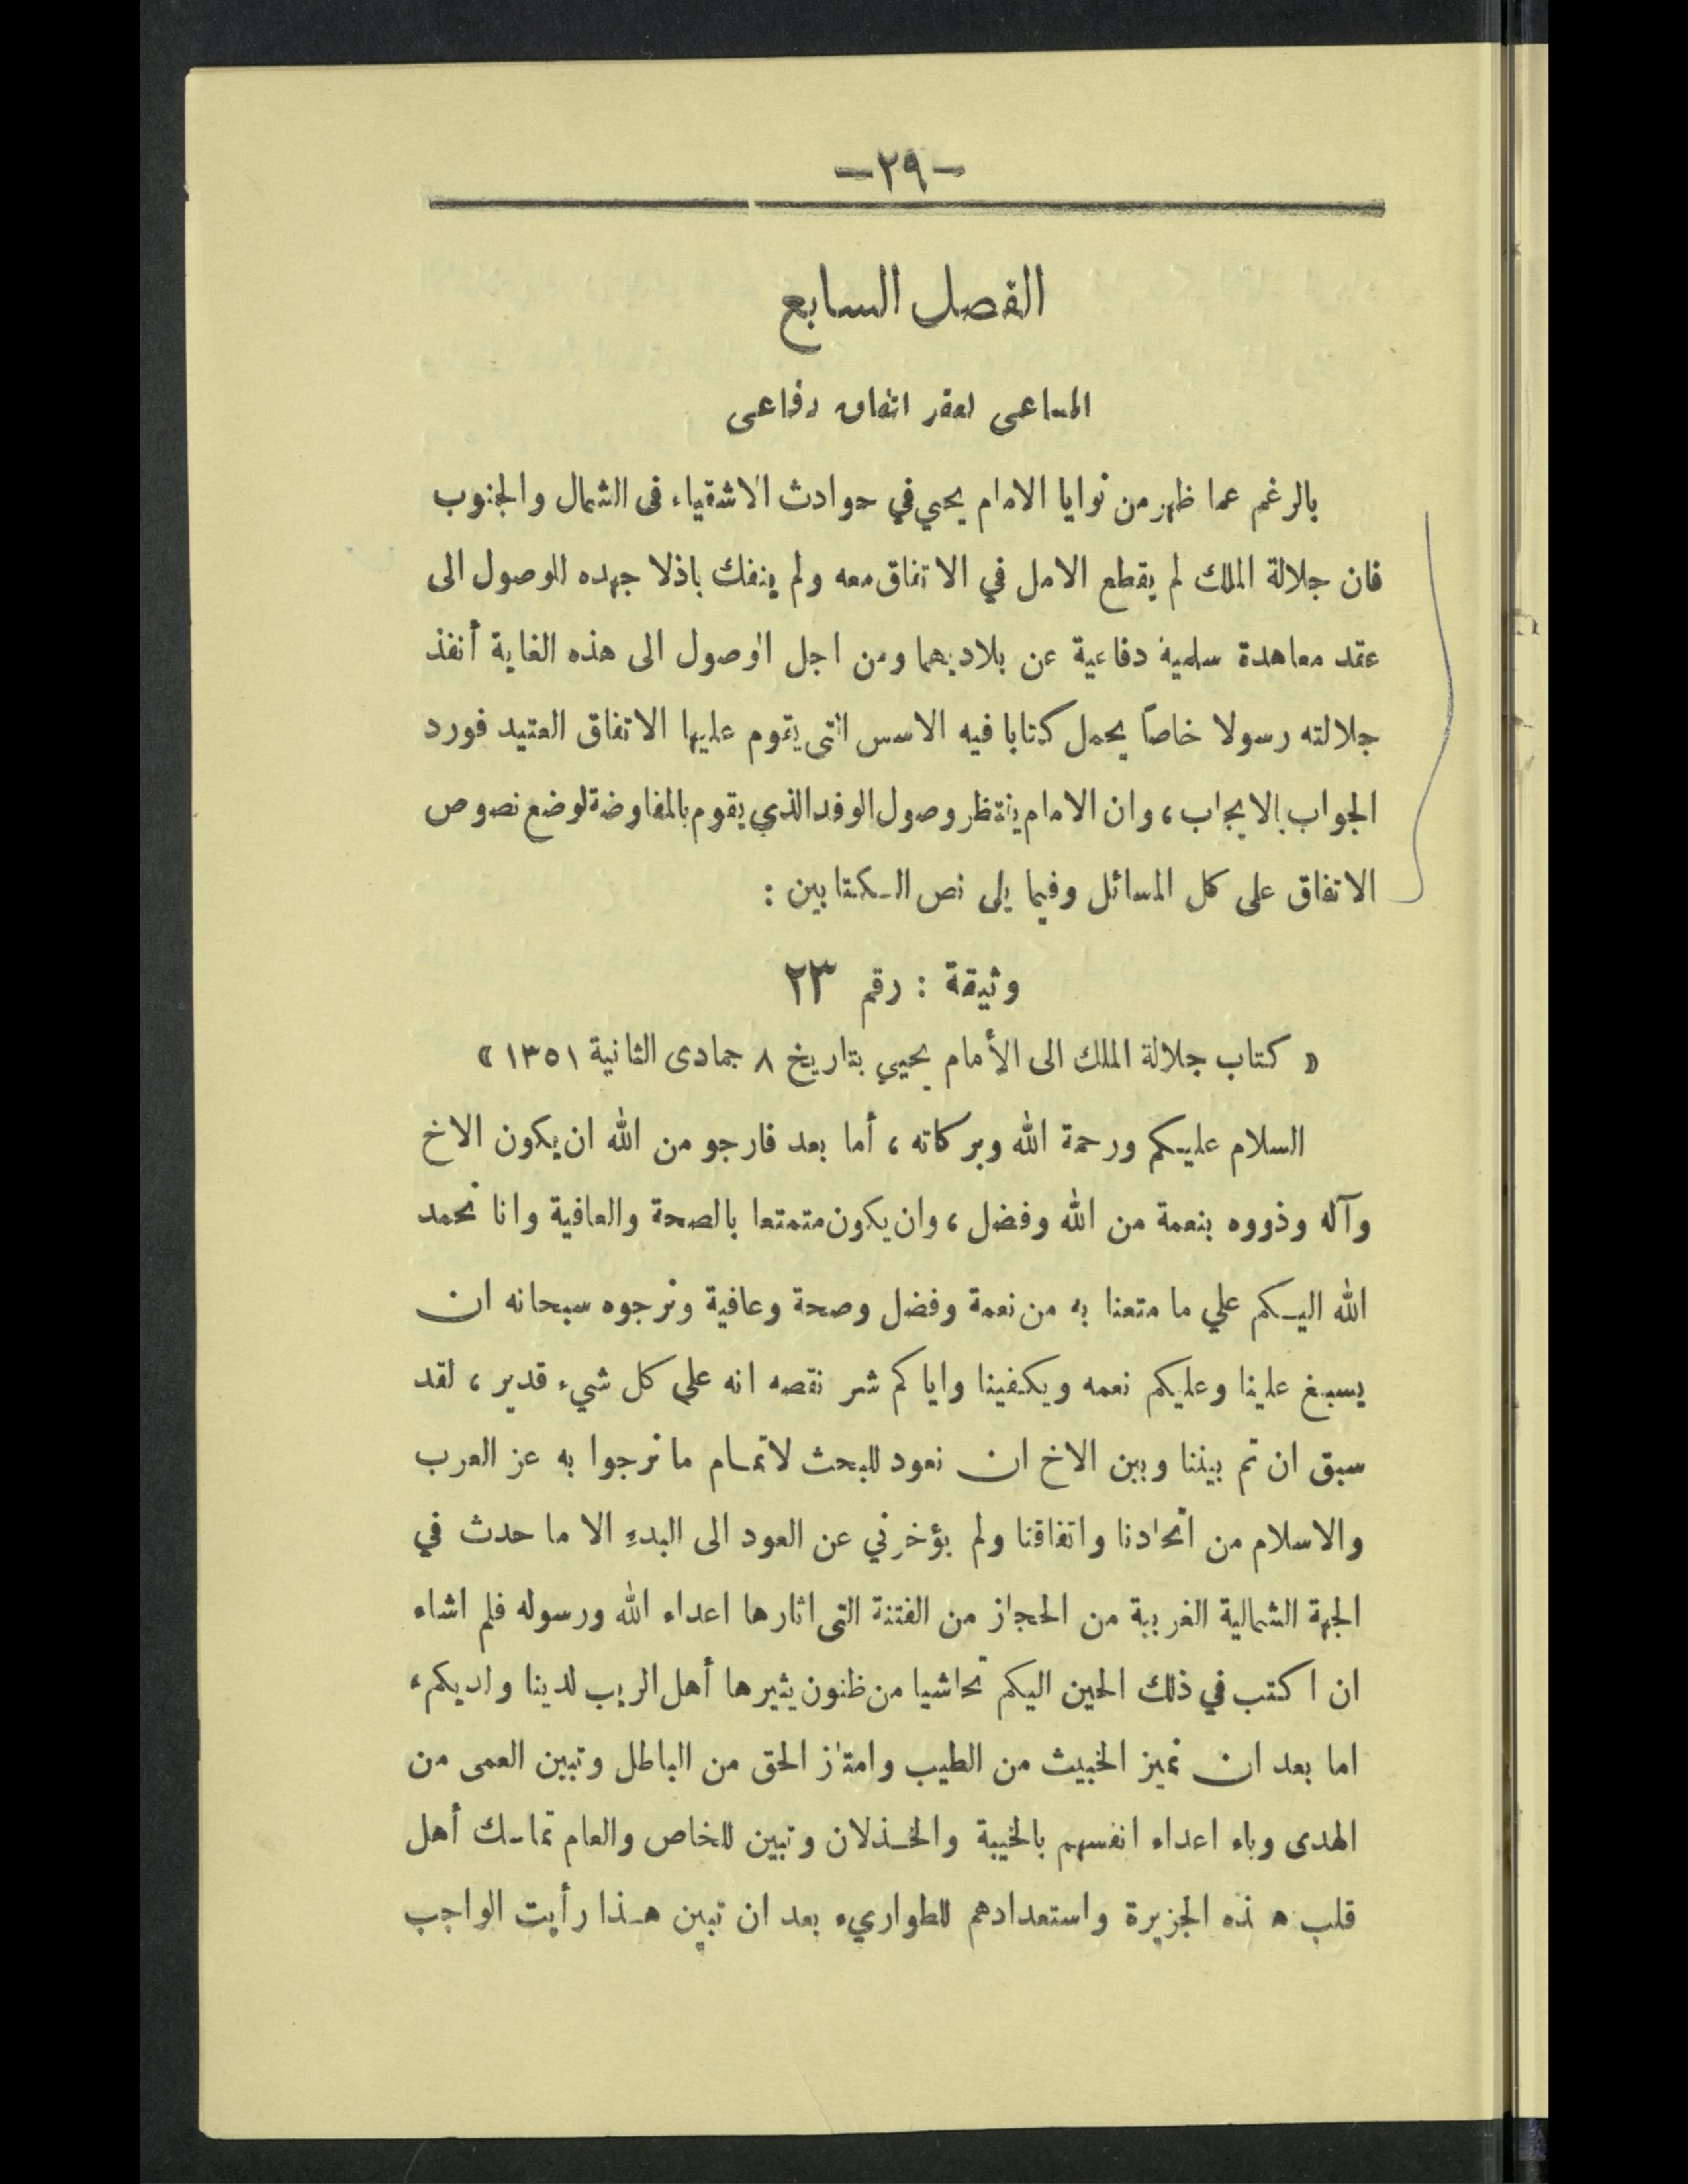 -٢٩-
الفصل السابع
المساعى لعقد اتفاق دفاعى
بالرغم عما ظهر من نوايا الامام يحيي في حوادث الاشقياء فى الشمال والجنوب
فان جلالة الملك لم يقطع الامل في الاتفاق معه ولم ينفك باذلا جهده للوصول الى
عقد معاهدة سلمية دفاعية عن بلاديهما ومن اجل الوصول الى هذه الغاية أنفذ
جلالته رسولا خاصاً يحمل كتابا فيه الاسس التى يقوم عليها الاتفاق العتيد فورد
الجواب بالايجاب ، وان الامام ينتظر وصول الوفد الذي يقوم بالمفاوضة لوضع نصوص
الاتفاق على كل المسائل وفيما يلى نص الكتابين :
وثيقة : رقم ٢٣
« كتاب جلالة الملك الى الأمام يحيي بتاريخ ٨ جمادى الثانية ١٣٥١ »
السلام عليكم ورحمة الله وبركاته ، أما بعد فارجو من الله ان يكون الاخ
وآله وذووه بنعمة من الله وفضل ، وان يكون متمتعا بالصحة والعافية وانا نحمد
الله اليكم علي ما متعنا به من نعمة وفضل وصحة وعافية ونرجوه سبحانه ان
يسبغ علينا وعليكم نعمه ويكفينا واياكم شر نقصه انه علي كل شيء قدير ، لقد
سبق ان تم بيننا وبين الاخ ان نعود للبحث لاتمام ما نرجوا به عز العرب
والاسلام من اتحادنا واتفاقنا ولم يؤخرني عن العود الى البدء الا ما حدث في
الجهة الشمالية الغربية من الحجاز من الفتنة التى اثارها اعداء الله ورسوله فلم اشاء
ان اكتب في ذلك الحين اليكم تحاشيا من ظنون يثيرها أهل الريب لدينا ولديكم ،
اما بعد ان تميز الخبيث من الطيب وامتاز الحق من الباطل وتبين العمى من
الهدى وباء اعداء انفسهم بالخيبة والخذلان وتبين للخاص والعام تماسك أهل
قلب هذه الجزيرة واستعدادهم للطواريء بعد ان تبين هذا رأيت الواجب